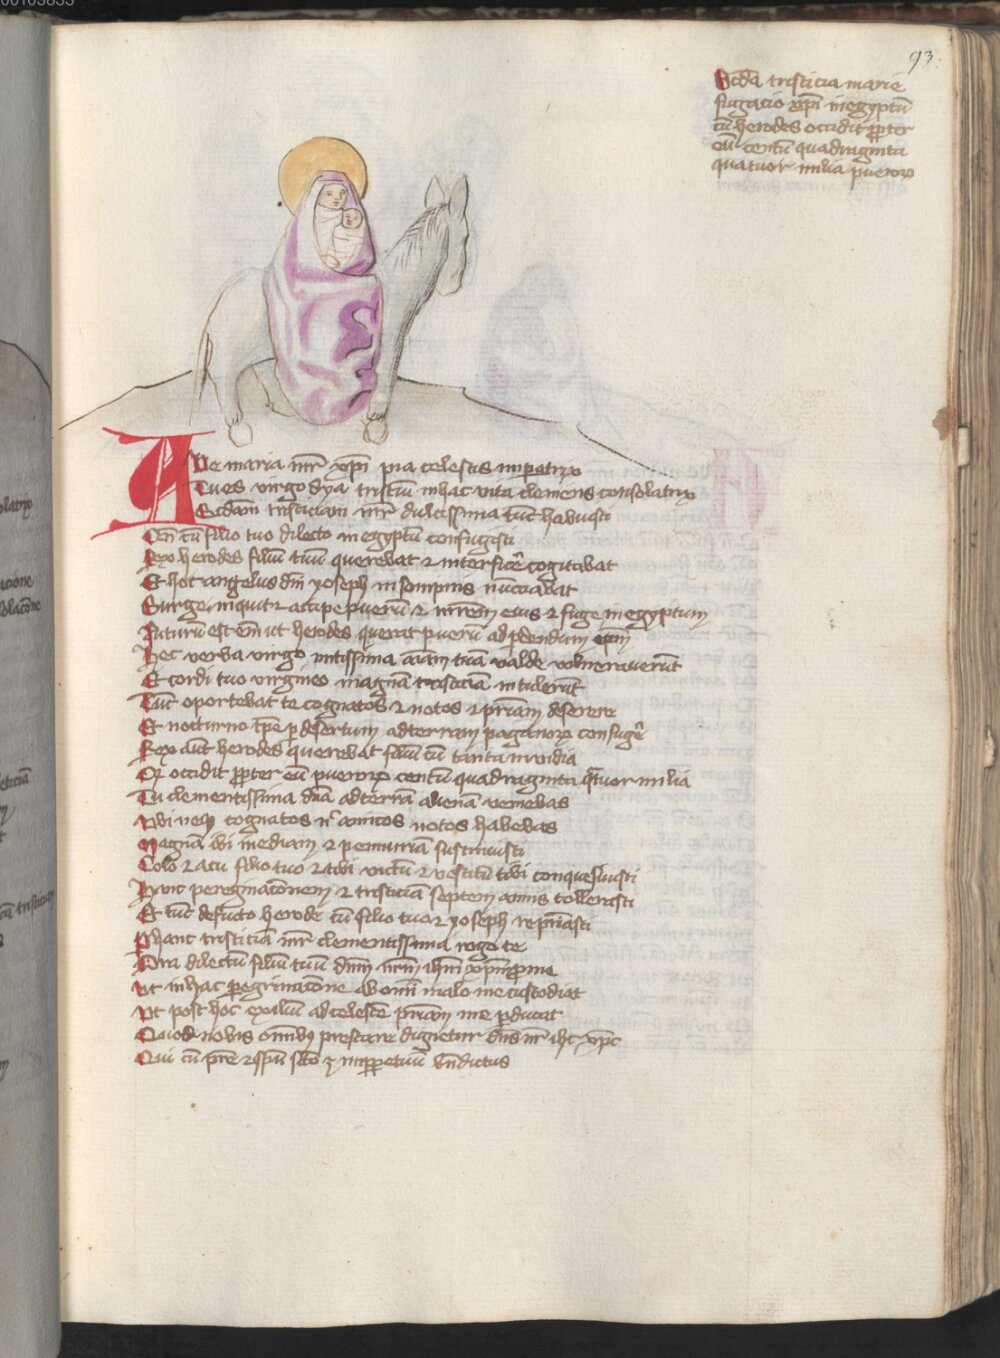 93
Scda tristicia marie
fugacio xpi in egyptū
cū herodes occidit ꝓpter
eū centū quadraginta
quatuor milia pueroꝝ
Aue maria mr̄ xpi pia celestis imperatrix
Tu es virgo dya tristiū in hac vita clemens consolatrix
Scdam tristiciam mr̄ dulcissima tūc habuisti
Cū filio tuo dilecto in egyptū confugisti
Rex herodes filiū tuū querebat ⁊ interficē cogitabat
Et hoc angelus dn̄i yoseph in sompnis nūcciabat
Surge inquit ⁊ accipe puerū ⁊ mr̄em eius ⁊ fuge in egyptum
Futurū est em̄ ut herodes querat puerū ad ꝑdendum eum
Hec verba virgo mitissima aīam tuā valde vulnerauerūt
Et cordi tuo virgineo magnā tristiciā intulerūt
Tūc oportebat te cognatos ⁊ notos ⁊ pr̄iam deserere
Et nocturno tp̄e ꝑ desertum ad terram paganoꝝ confugē
Rex aūt herodes querebat filiū cū tanta inuidia
Qꝫ occidit ꝓpter eū pueroꝝ centū quadraginta qᵃtuor milia
Tu clementissima dn̄a ad terrā alienā veniebas
Vbi neqꝫ cognatos nᶜ amicos notos habebas
Magnā ibi inediam ⁊ penuriam sustinuisti
Colo ⁊ acu filio tuo ⁊ tibi victū ⁊ vestitū tibi conquesiuisti
Hanc peregrinacionem ⁊ tristiciā septem annis tollerasti
Et tūc defūcto herode cū filio tuo ⁊ yoseph repr̄iasti
Ꝑ hanc tristiciā mr̄ clementissima rogo te
Ora dilectū filiū tuū dn̄m nr̄m ihm̄ xpm̄ ꝓ me
Vt in hac ꝑegrinacōne ab omī malo me custodiat
Vt post hoc exiliū ad celestē pr̄iam me ꝑducat
Quod nobis omībꝫ prestare dignetur dn̄s nr̄ ihc xpc
Qui cū pr̄e ⁊ spū scō ē in ꝑpetuū bn̄dictus